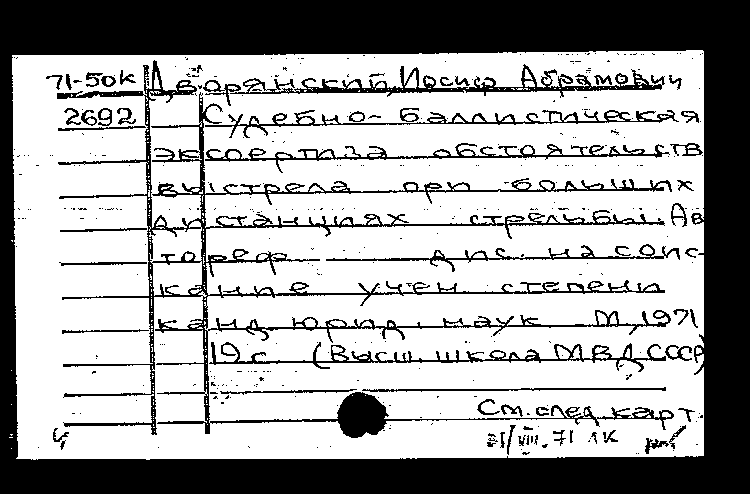 71-50к Дворянский, Иосиф Абрамович
2692 Судебно-баллистическая
экспертиза обстоятельств
выстрела при больших
дистанциях стрельбы. Ав
тореф. дис. на соис-
кание учен. степени
канд. юрид. наук М., 1971
19 с. (Высш. школа МВД СССР)
См. след. карт.
21/VIII.71 1К